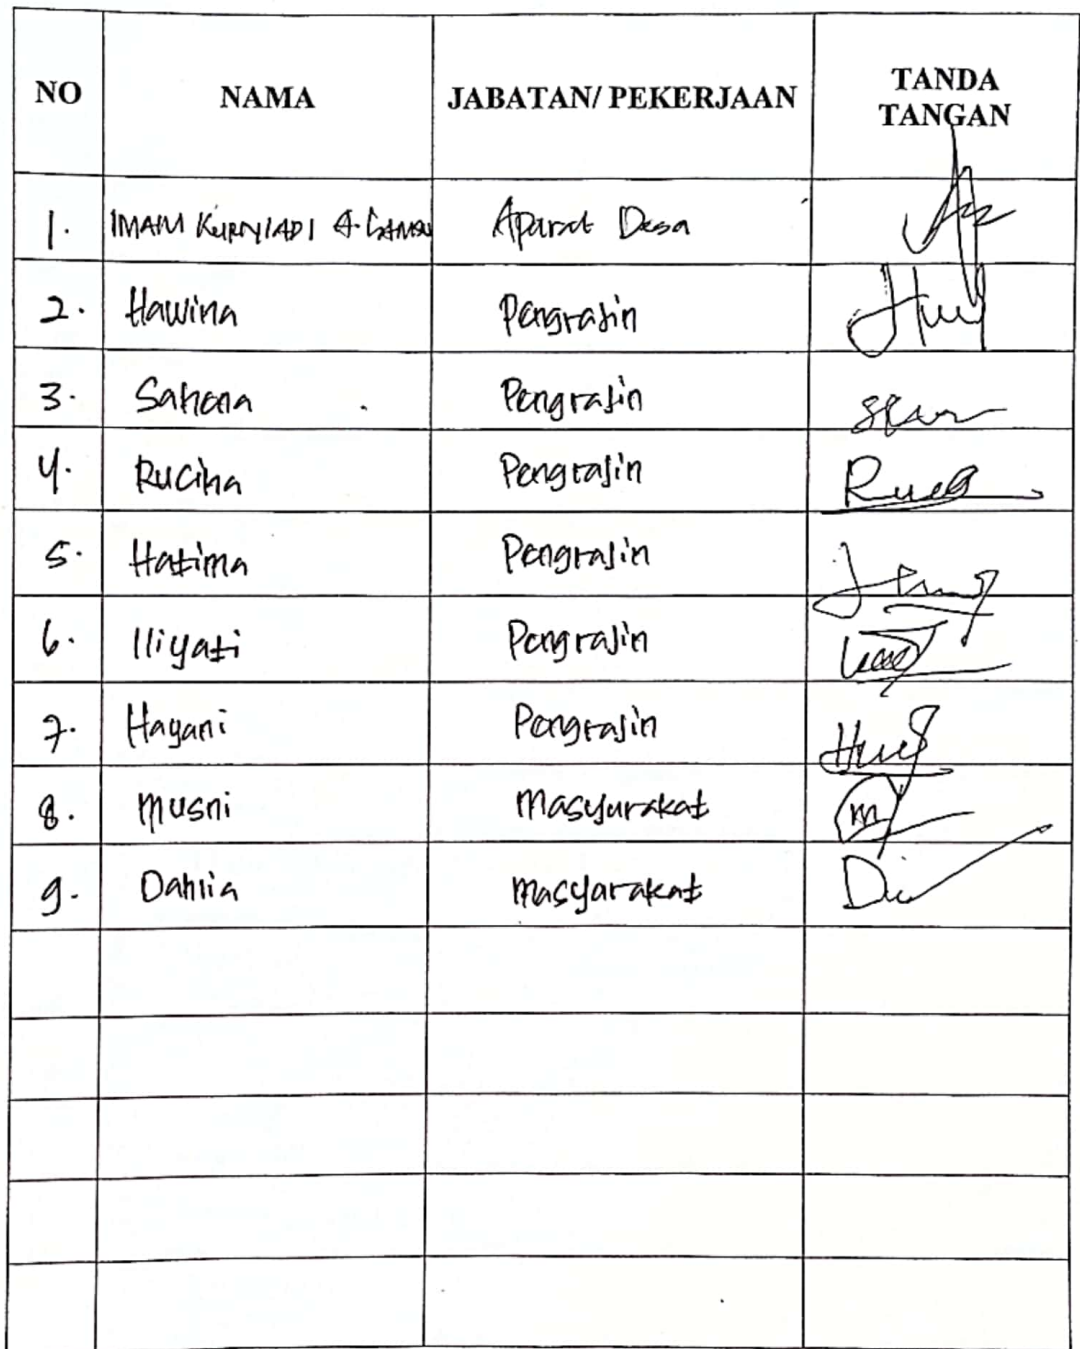 NO NAMA JABATAN/ PEKERJAAN TANDA TANGAN
1. IMAM KURNIADI A. Aparat Desa
2. Hawina Pengrajin
3. Sahena Pengrajin
4. Rucina Pengrajin
5. Hatima Pengrajin
6. Iliyati Pengrajin
7. Hayani Pengrajin
8. Musni Masyurakat
9. Dahlia Masyarakat